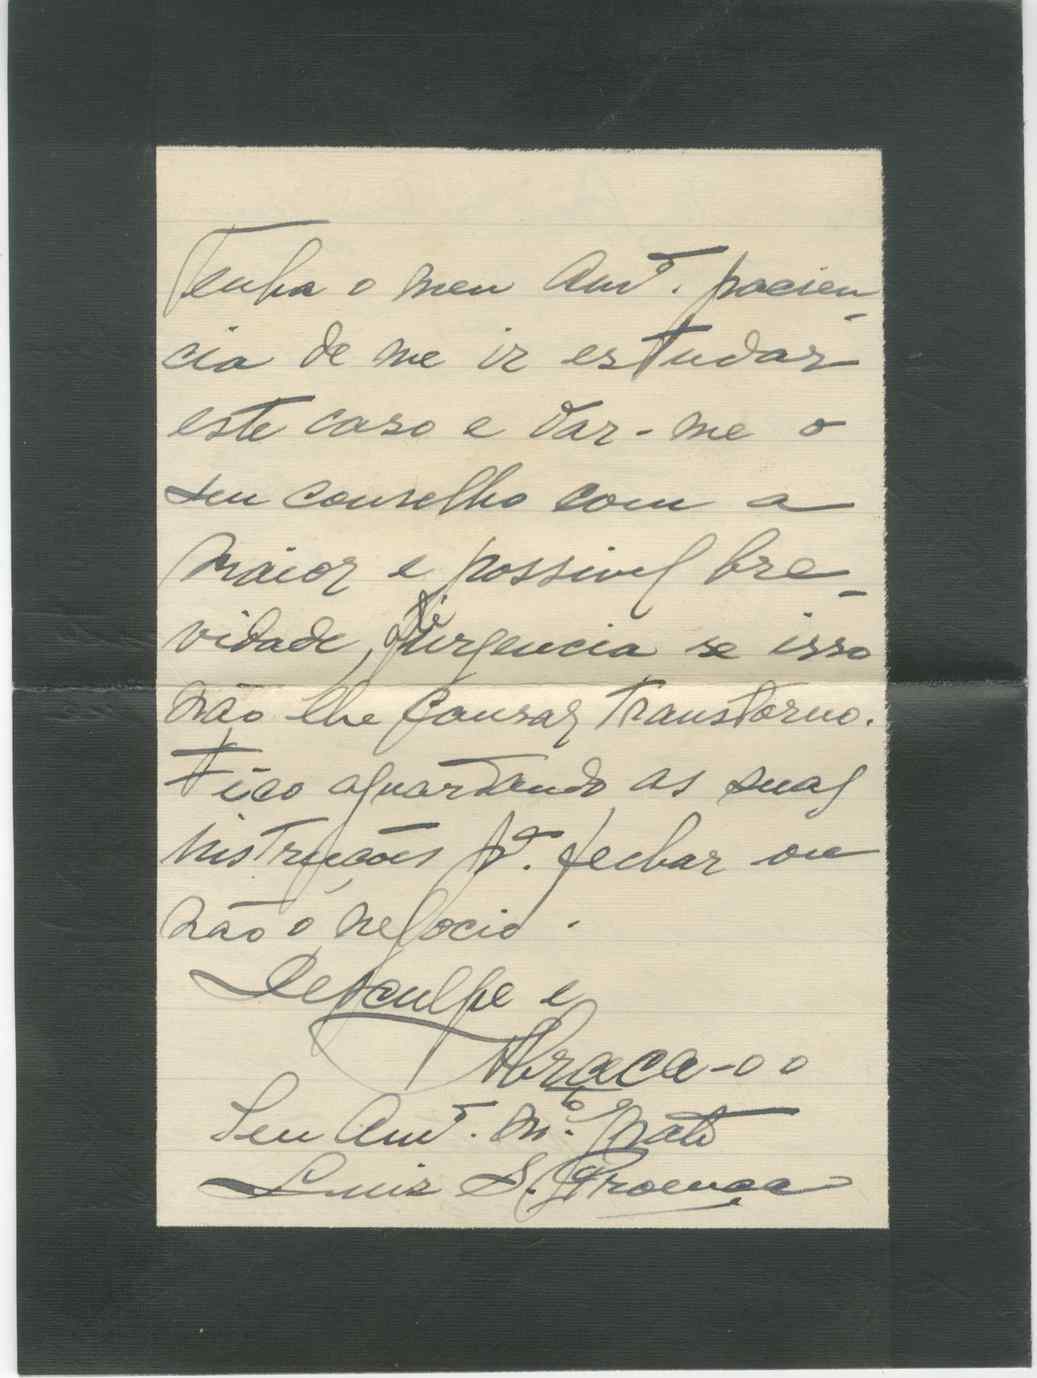 Tenha o meu Amº. pacien-
cia de me ir estudar
este caso e dar-me o
seu conselho com a
maior e possivel bre-
vidade, urgencia se isso
não lhe causar transtorno.
Fico aguardando as suas
instruções pª. fechar ou
não o negocio.
Desculpe e
Abraça-o o
Seu Amº. mº. grato
Luiz S. Proença